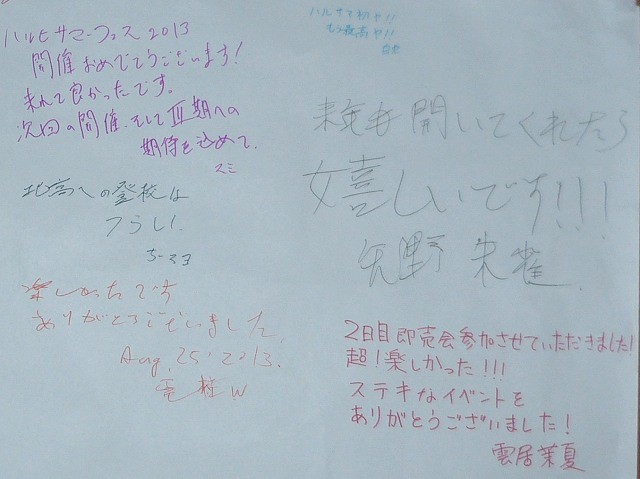 ハルヒサマーフェス2013
開催おめでとうございます!
来れて良かったです。
次回の開催、そしてⅢ期への
期待を込めて。
スミ
北高への登校は
つらい!
ち-スヨ
楽しかったです
ありがとうございました。
Aug, 25' 2013.
ハルサマ初や!!
もう最高や!!
来年も開いてくれたら
嬉しいです!!!
矢野 朱雀.
2日目即売会参加させていただきました!
超!楽しかった!!!
ステキなイベントを
ありがとうございました!
雲居 茉夏